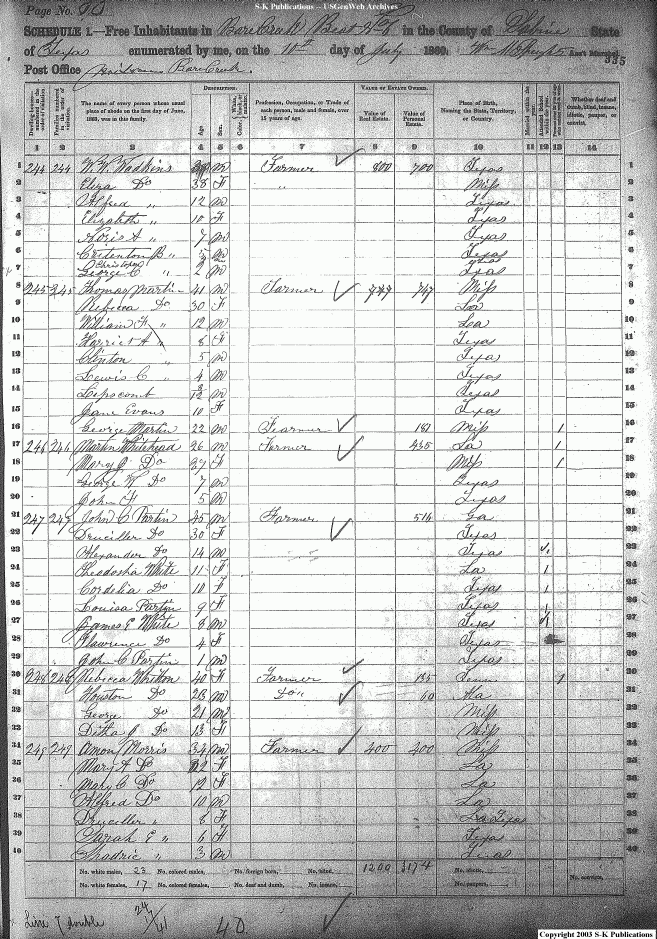 S-K Publications -- USGenWeb Archives
Page No. 90
SCHEDULE 1.—Free Inhabitants in Bare Creek Beat No 6 in the County of Sabine State
of Texas enumerated by me, on the 10th day of July 1860. Wm McKnight Ass't Marshal.
Post Office Bare Creek.
335
Dwelling-houses numbered in the order of visitation.
Families numbered in the order of visitation.
The name of every person whose usual place of abode on the first day of June, 1860, was in this family.
DESCRIPTION.
Age. Sex.
Profession, Occupation, or Trade of each person, male and female, over 15 years of age.
VALUE OF ESTATE OWNED.
Value of Real Estate. Value of Personal Estate.
Place of Birth, Naming the State, Territory, or Country.
Married within the year.
Attended School within the year.
Whether deaf and dumb, blind, insane, idiotic, pauper, or convict.
1 2 3 4 5 6 7 8 9 10 11 12 13 14
1 244 244 W. W. Wadkins m Farmer 800 700 Texas 1
2 Eliza Do 38 F " Miss 2
3 Alfred " 12 m Texas 3
4 Elizabeth " 10 F Texas 4
5 Noris A " 7 m Texas 5
6 Critenton B " 5 m Texas 6
Christopher Texas
7 George C " 2 m Texas 7
8 245 245 Thomas Martin 41 m Farmer 747 Miss 8
9 Rebecca Do 30 F La 9
10 William F " 12 m La 10
11 Harriet A " 8 F Texas 11
12 Clinton " 5 m Texas 12
13 Lewis C " 4 m Texas 13
14 Lipscomb 3/12 m Texas 14
15 Jane Evans 10 F Texas 15
16 George Martin 22 m Fearmer 187 Miss 1 16
17 246 246 Martin Whitehead 26 m Farmer 435 La 1 17
18 Mary J Do 27 F Miss 1 18
19 George W Do 7 m Texas 19
20 John F 5 m Texas 20
21 247 247 John C Partin 45 m Farmer 514 Ga 21
22 Druciller Do 30 F Texas 22
23 Alexander Do 14 m Texas 1 23
24 Theodosha White 11 F La 1 24
25 Cordelia Do 10 F Texas 1 25
26 Louisa Partin 9 F Texas 1 26
27 James E White 8 m Texas 1 27
28 Flawrence Do 4 F Texas 28
29 John C Partin 1 m Texas 29
30 248 248 Rebecca Whitton 40 F Farmer 135 Tenn 1 30
31 Houston Do 23 m Do " 60 Ala 31
32 George Do 21 m Miss 32
33 Ditha J Do 13 F Miss 33
34 249 249 Amon Morris 34 m Farmer 400 200 Miss 34
35 Mary A Do F La 35
36 Mary C Do 12 F La 36
37 Alfred Do 10 m La 37
38 Druciller " 8 F La Texas 38
39 Sarah E " 6 F Texas 39
40 Shadric " 3 m Texas 40
No. white males, 23 No. colored males, No. foreign born, No. blind, 1200 3174 No. idiotic, No. convicts,
No. white females, 17 No. colored females, No. deaf and dumb, No. insane, No. paupers,
Line 7 double 24/17/41 40
Copyright 2003 S-K Publications